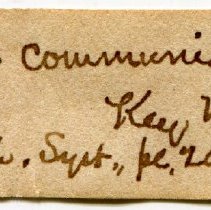 Communi
Key W
. Syst., pl. 2